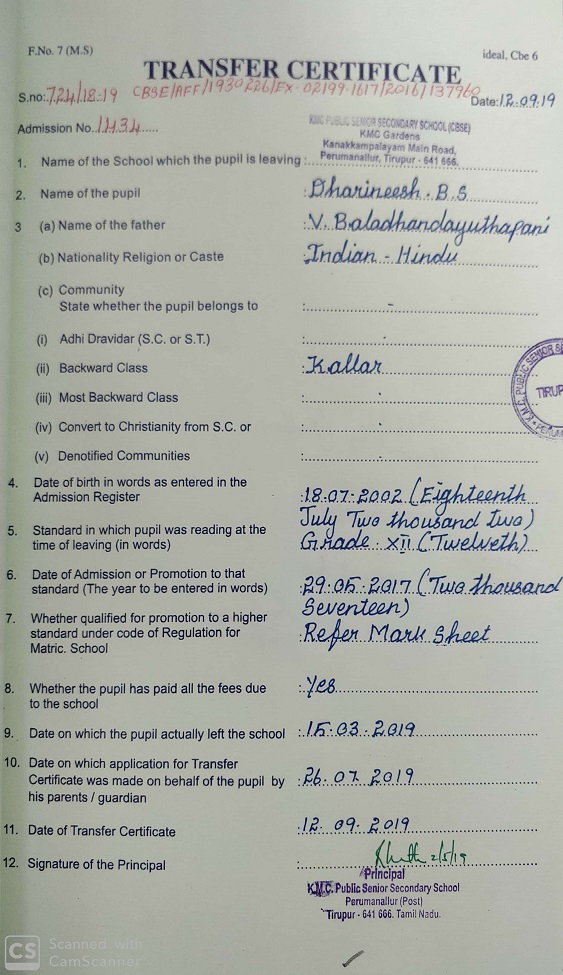 F.No. 7 (M.S)
ideal, Cbe 6
TRANSFER CERTIFICATE
S.no: 724/18-19 CBSE/AFF/1930226/EX-02199-1617/2016/137960 Date: 12.09.19
Admission No. 1434
KMC PUBLIC SENIOR SECONDARY SCHOOL (CBSE)
KMC Gardens
Kanakkampalayam Main Road,
Perumanallur, Tirupur - 641 666.
1. Name of the School which the pupil is leaving :
2. Name of the pupil : Dharineesh. B.S
3 (a) Name of the father : V. Baladhandayuthapani
(b) Nationality Religion or Caste : Indian - Hindu
(c) Community
State whether the pupil belongs to : -
(i) Adhi Dravidar (S.C. or S.T.) :
(ii) Backward Class : Kallar
(iii) Most Backward Class :
(iv) Convert to Christianity from S.C. or :
(v) Denotified Communities :
K.M.C. PUBLIC SENIOR SE
TIRUP
PERUM
4. Date of birth in words as entered in the
Admission Register : 18.07.2002 (Eighteenth
July Two thousand two)
5. Standard in which pupil was reading at the
time of leaving (in words) Grade : XII (Twelveth)
6. Date of Admission or Promotion to that
standard (The year to be entered in words) : 29.05.2017 (Two thousand
Seventeen)
7. Whether qualified for promotion to a higher
standard under code of Regulation for
Matric. School Refer Mark Sheet
8. Whether the pupil has paid all the fees due
to the school : Yes
9. Date on which the pupil actually left the school : 15.03.2019
10. Date on which application for Transfer
Certificate was made on behalf of the pupil by
his parents / guardian : 26.07.2019
11. Date of Transfer Certificate : 12.09.2019
12. Signature of the Principal :
Principal
K.M.C. Public Senior Secondary School
Perumanallur (Post)
Tirupur - 641 666. Tamil Nadu.
CS Scanned with
CamScanner